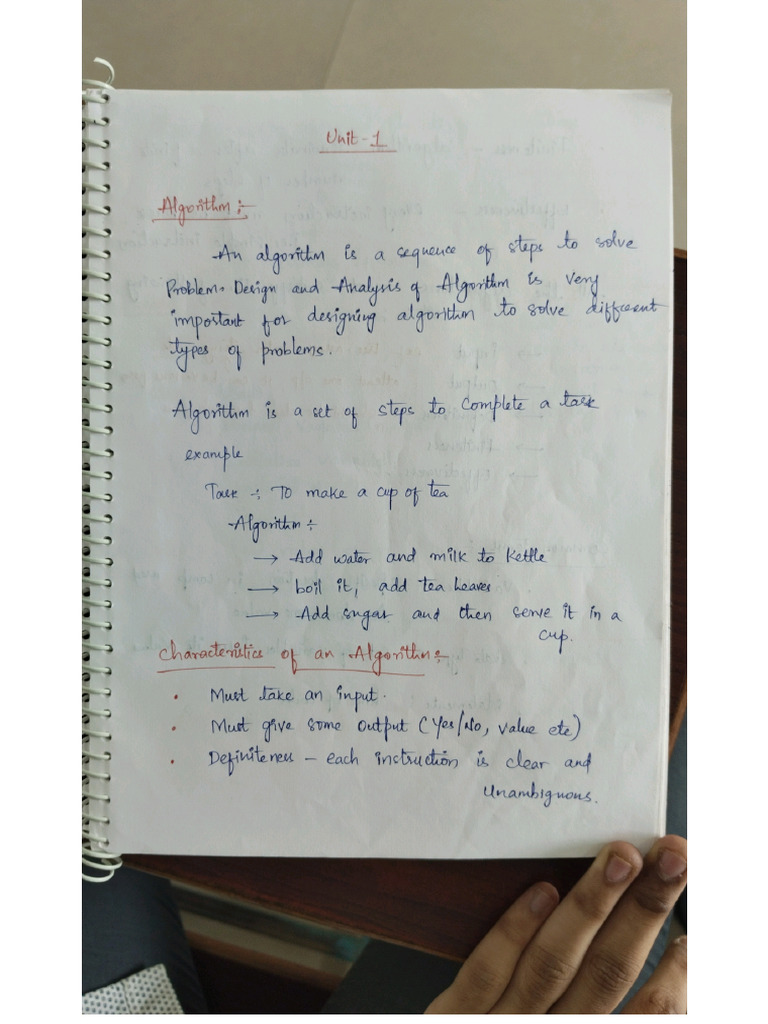 Unit-1
Algorithm :-
An algorithm is a sequence of steps to solve
Problem. Design and Analysis of Algorithm is very
important for designing algorithm to solve different
types of problems.
Algorithm is a set of steps to complete a task
example
Task :- To make a cup of tea
Algorithm :-
→ Add water and milk to kettle
→ boil it, add tea leaves
→ Add sugar and then serve it in a
cup.
Characteristics of an Algorithm :-
• Must take an input.
• Must give some output (Yes/No, value etc)
• Definiteness – each instruction is clear and
unambiguous.